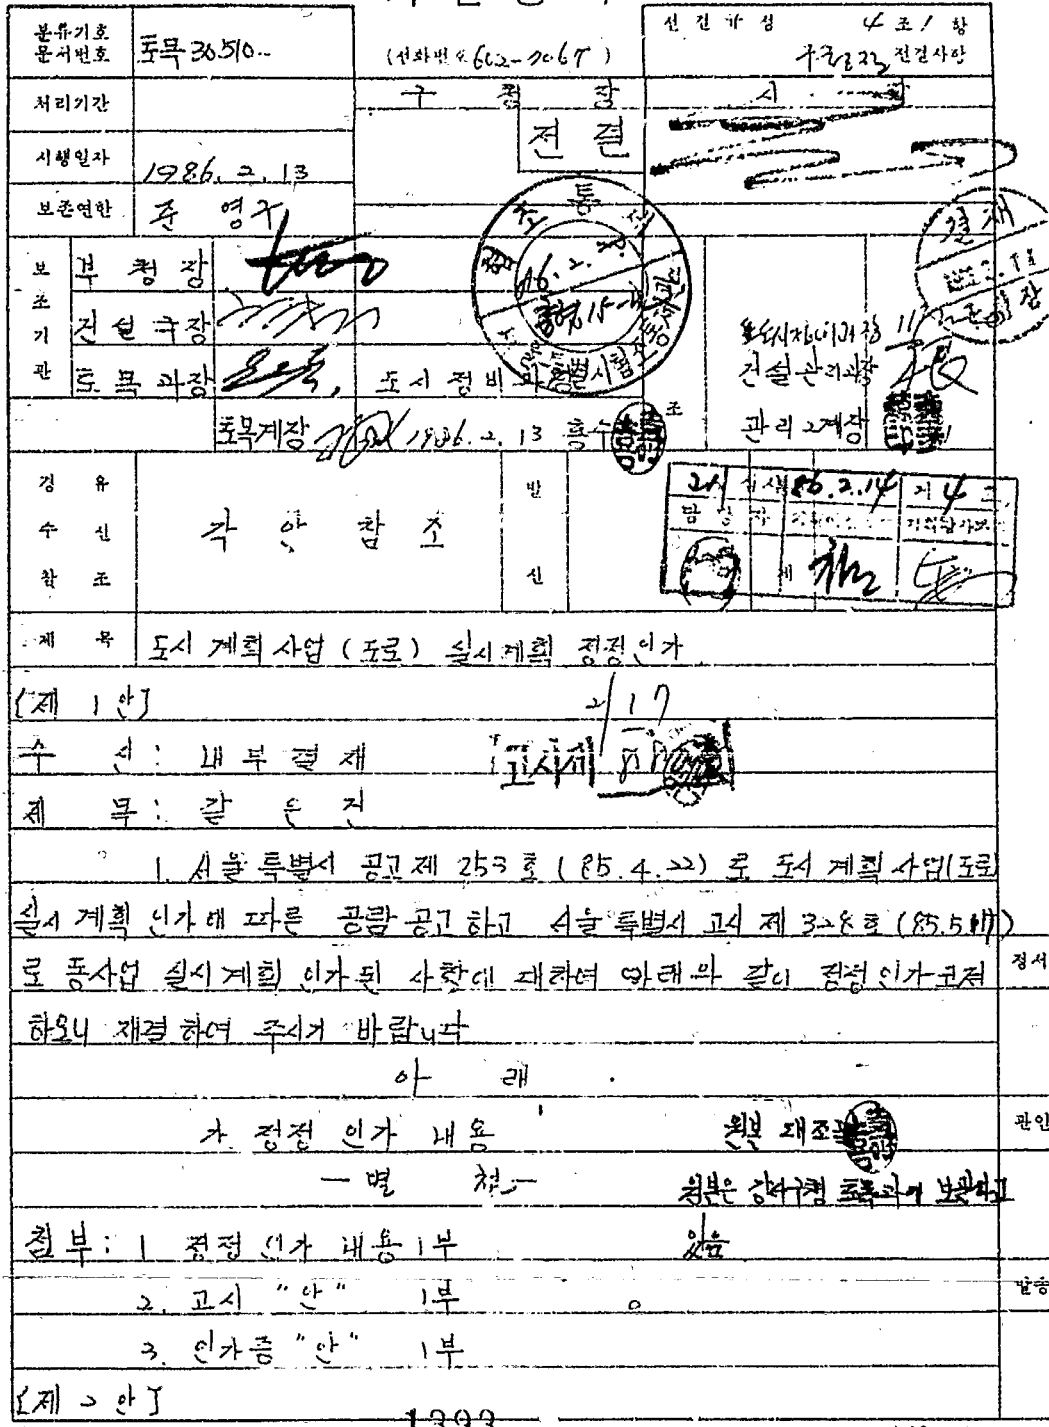 분류기호
문서번호
토목 30510-
(전화번호 602-7067)
4조 1항
전결사항
처리기간
구 청 장
시
전결
시행일자
1986. 2. 13
보존연한
준 영구
보조기관
부청장
건설국장
토목과장
도시정비과
건설관리과장
토목계장
1986. 2. 13
관리2계장
협조통제
결재
경유
수신
참조
각 안 참조
발신
86.2.14
제 목
도시계획사업(도로) 실시계획 정정인가
[제 1 안]
2/17
수 신: 내부결재
고시제
제 목: 같은 건
1. 서울특별시 공고 제 253호 (85.4.22)로 도시계획사업(도로)
실시계획 인가에 따른 공람공고하고 서울특별시 고시 제 328호 (85.5.17)
로 동사업 실시계획 인가된 사항에 대하여 아래와 같이 정정인가코저
정서
하오니 재결하여 주시기 바랍니다
아 래
가. 정정인가 내용
원본 대조필
관인
- 별 첨 -
원본은 강서구청 토목과에 보관하고
있음
첨부: 1. 정정인가 내용 1부
2. 고시 "안" 1부
발송
3. 인가증 "안" 1부
[제 2 안]
1393